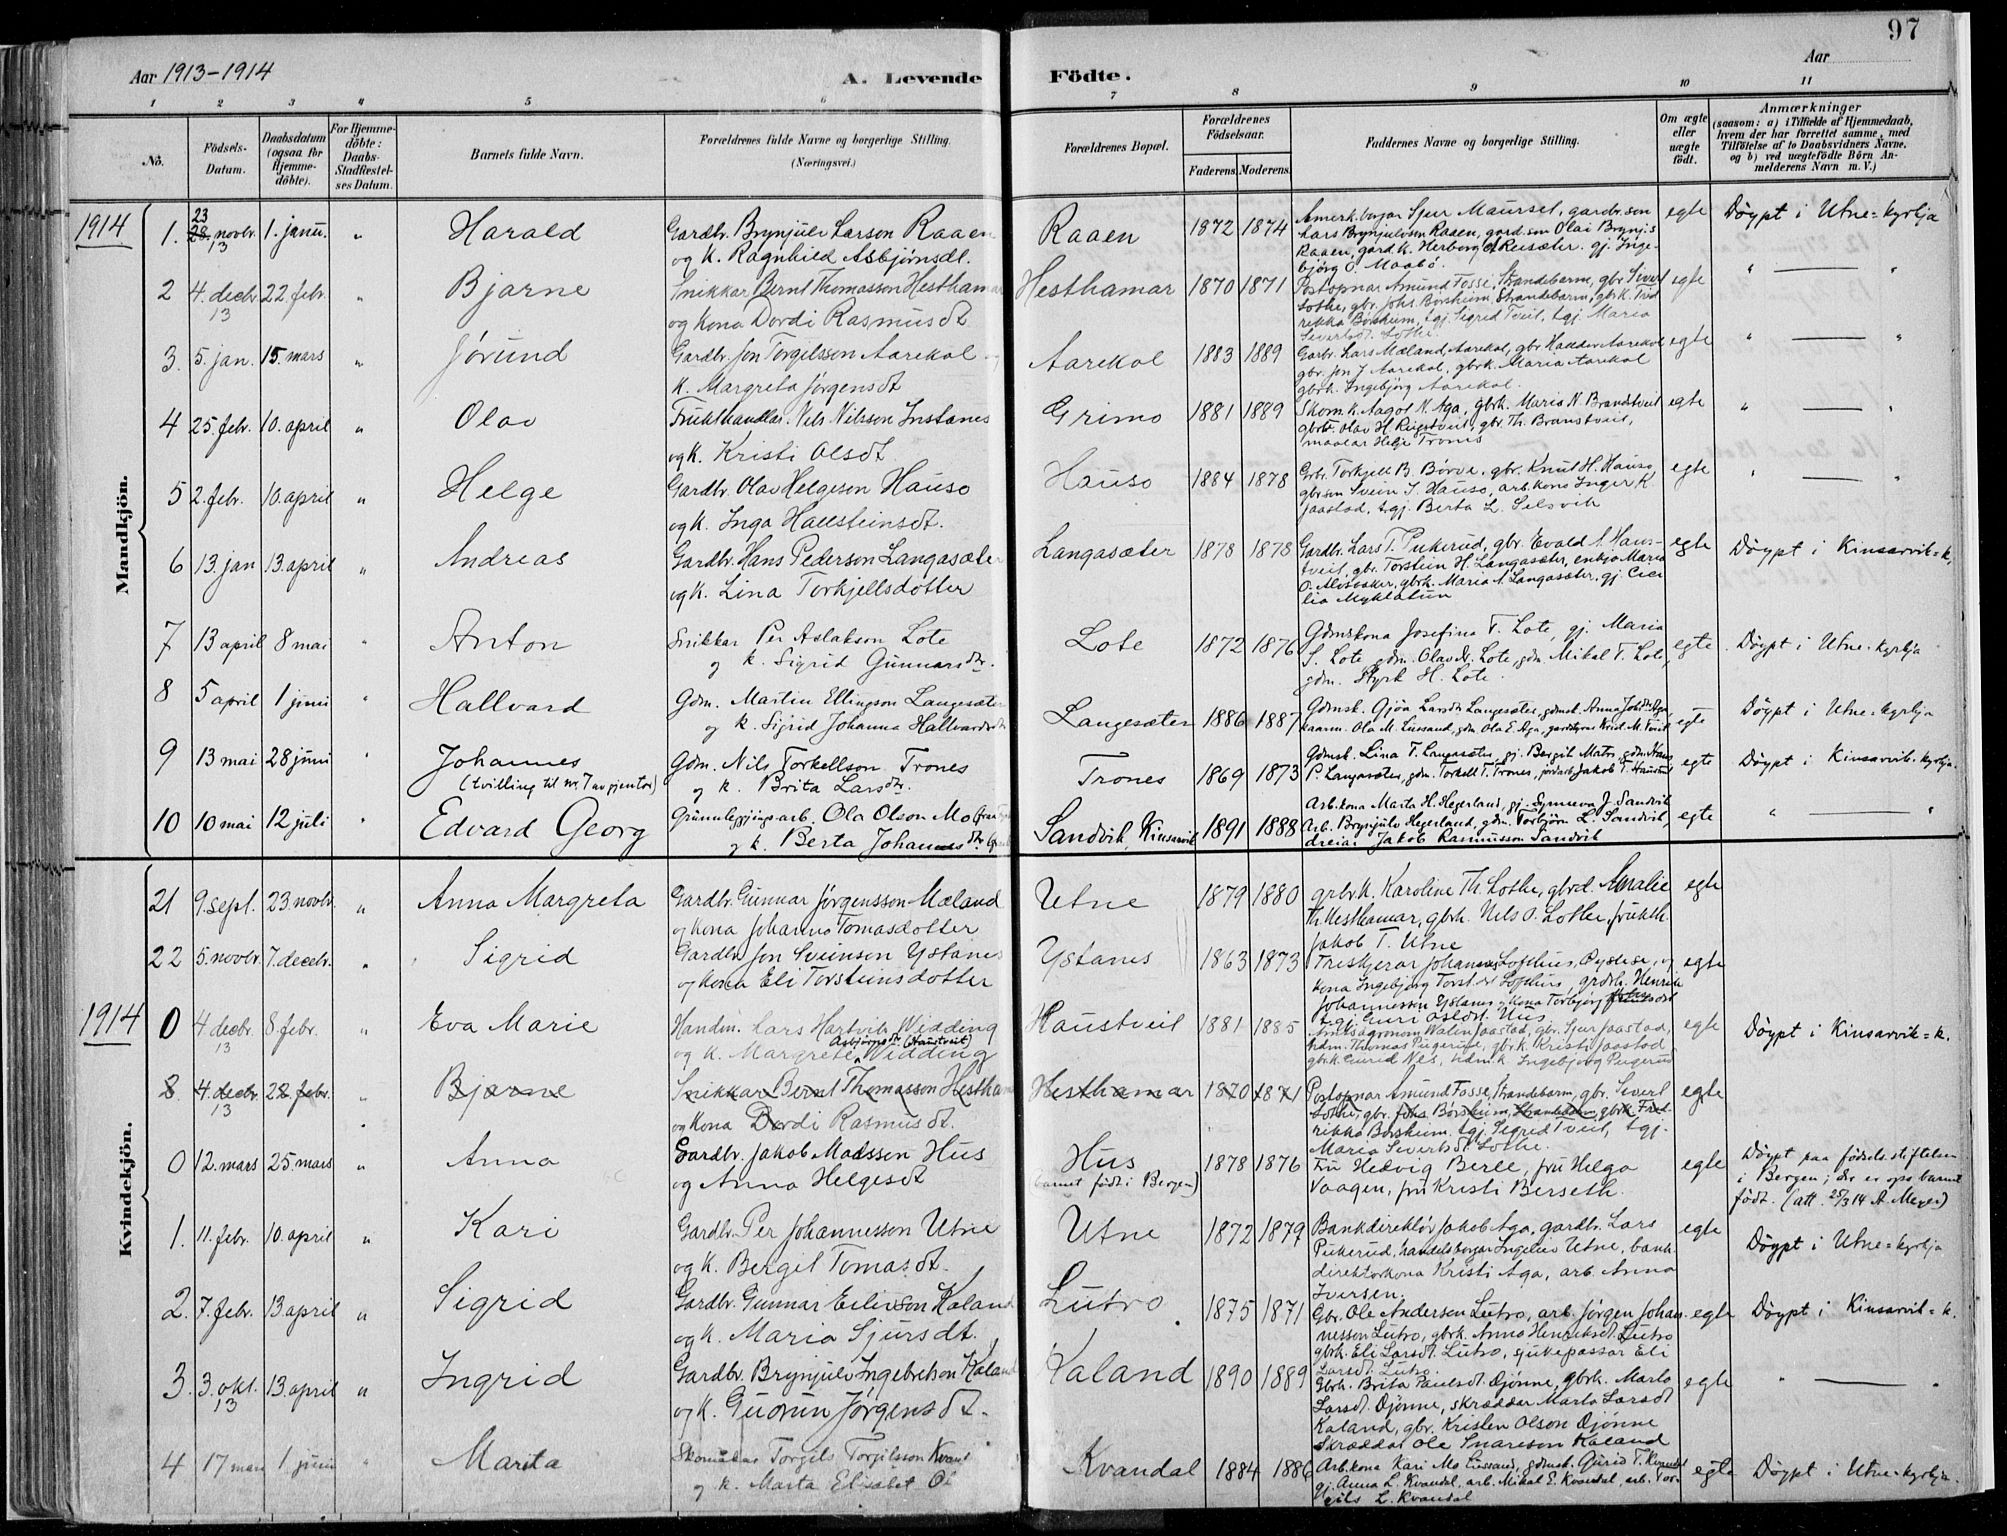 97
Aar 1913-1914
A. Levende Födte.
Aar
1 2 3 4 5 6 7 8 9 10 11
No.
Födsels-Datum.
Daabsdatum (ogsaa for Hjemme-döbte).
For Hjemme-döbte: Daabs-Stadfæstel-ses Datum.
Barnets fulde Navn.
Forældrenes fulde Navne og borgerlige Stilling.
(Næringsvei.)
Forældrenes Bopæl.
Forældrenes Födselsaar.
Faderens. Moderens.
Faddernes Navne og borgerlige Stilling.
Om ægte eller uægte födt.
Anmærkninger
(saasom: a) i Tilfælde af Hjemmedaab, hvem der har forrettet samme, med Tilföielse af to Daabsvidners Navne, og b) ved uægtefödte Börn An-melderens Navn m. V.)
Mandkjön.
1914
1. 23 28. novbr. 13 1. janu. " Harald Gardbr. Brynjulv Larson Raaen
og k. Ragnhild Asbjørnsdt.
Raaen 1872 1874 Amerk. borgar Sjur Maurset, gardbr. son
Lars Brynjulvson Raaen, gard. son Olai Brynj.s
Raaen, gard k. Herborg Reisæter. gj. Inge-
björg O. Maabö. egte Döypt i Utne-kyrkja
2 4. decbr. 13 22 febr. " Bjarne Snikkar Bernt Thomasson Hesthamar
og kona Dordi Rasmusdt.
Hesthamar 1870 1871 Postopnar Amund Fosse, Strandebarm, gbr Sivert
Lothe, gbr. Johs. Börsheim, Strandebarm, gbrk. Fred
rikka Börsheim, tgj. Sigrid Tveit, tgj. Maria
Sivertsdt. Lothe. egte " — "
3. 5. jan. 15. mars " Jórund Gardbr. Jon Torgilsson Aarekol
k. Margreta Jörgensdt
Aarekol 1883 1889 Garbr. Lars Mæland, Aarekol, gbr Haldor Aarekol
gbr. Jon J. Aarekol, gbrk. Maria Aarekol
gbrk. Ingebjörg Aarekol. egte " — "
4 25. febr. 10. april " Olav Frukthandlar. Nils Nilsson Instanes
og k. Kristi Olsdt
Grimo 1881 1889 Skom. k. Aagot N. Aga, gbrk. Maria N. Brandstveit
Olav H. Reigstveit, gbr. Th. Branstveit,
maalar Helje Trones egte " — "
5 2. febr. 10. april " Helge Gardbr. Olav Helgeson Hauso
og k. Inga Hallsteinsdt.
Hauso 1884 1878 Grbr. Torkjell B. Börve, gbr. Knut H. Hauso,
gbrson Svein S. Hauso, arb. kona Inger K.
Jaastad, tgj. Berta L. Selsvik egte " — "
6 13 jan 13. april " Andreas Gardbr. Hans Pederson Langasæter
og k. Lina Torkjellsdotter
Langasæter 1878 1878 Gardbr. Lars T. Pukerud, gbr. Evald A. Haus-
tveit, gbr. Torstein H. Langasæter, enkja Maria
O. Alvsaker, gbrk. Maria A. Langasæter, gj. Ceci
lia Myklatun egte Döypt i Kinsarvik-k,
7 13 april 8 mai " Anton Snikkar Per Aslakson Lote
og k. Sigrid Gunnarsdtr.
Lote 1872 1876 Gdmskona Josefina T. Lote, gj. Maria
S. Lote, gdm. Olav N. Lote, gdm. Mikal T. Lote,
gdm. Styrk H. Lote. egte Döypt i Utne-kyrkja
8 5 april 1 juni " Hallvard Gdm. Martin Ellingson Langesæter
og k. Sigrid Johanna Hallvardsdtr
Langesæter 1886 1887 Gdmsk. Gjöa Larsdtr Langesæter, gdmsk. Anna Johsdtr Aga,
kaarm. Ola M. Lussand, gdm Ola E. Aga, Krist. M. Tveit egte Döypt i Utne-kyrkja
9 13 mai 28 juni " Johannes
(tvilling til nr 7 av gjentor)
Gdm. Nils Torkellson Trones
og k. Brita Larsdtr.
Trones 1869 1873 Gdmsk. Lina T. Langesæter, gj. Bergit Mats, gdm. Hans
P. Langasæter, gdm. Torkell T. Trones, Jakob T. Haustveit egte Döypt i Kinsarvik-kyrkja.
10 10 mai 12 juli " Edvard Georg Grunnleggjings-arb. Ola Olson Mo
og k. Berta Johannesdtr.
Sandvik, Kinsarvik 1891 1888 Arb. kona Marta H. Hegerland, gj. Synneva J. Sandvik
Arb. Brynjulv Hegerland, gdm. Torbjörn L. Sandvik,
dreiar Jakob Rasmusson Sandvik egte " — "
Kvindekjön.
21 9. sept. 23. novbr. " Anna Margreta Gardbr. Gunnar Jörgensson Mæland
og kona Johanna Tomasdotter
Utne 1879 1880 grbrk. Karoline Th. Lothe, gbrd. Amalie
Th. Hesthamar, gbrk. Nils O. Lothe, frukth.
Jakob T. Utne egte
22 5. novbr. 7. decbr. " Sigrid Gardbr. Jon Sveinson Ystanes
og kona Eli Torsteinsdotter
Ystanes 1863 1873 Treskjerar Johannes Lofthus, Öystese, og
kona Ingebjörg Torst.dt Lofthus, grdbr. Henrik
Johannesson Ystanes og kona Torbjörg
tgj. Guri Osldt. Hus. egte
1914
0 4 decbr. 13 8 febr. " Eva Marie Handm. Lars Hartvik Widding
og k. Margrete Asbjörnsdtr. (Haustveit) Widding
Haustveit 1881 1885 Amtsagronom Walen Jaastad, gbr. Sjur Jaastad,
hdm. Thomas Pugerud, gbr. k. Kristi Jaastad
gbrk. Gurid Nes, hdm. k. Ingebjörg Pugerud egte Döypt i Kinsarvik-k.
8. 4 decbr 13 28 febr. " Bjarne Snikkar Bernt Thomasson Hesthamar
og kona Dordi Rasmusdt.
Hesthamar 1870 1871 Postopnar Amund Fosse, Strandebarm, gbr. Sivert
Lothe, gbr. Johs Börsheim, Strandebarm, gbrk Fred-
rikka Borsheim, tgj. Sigrid Tveit, tgj.
Maria Sivertsdt. Lothe. egte
0 12. mars 25. mars " Anna Gardbr. Jakob Madssen Hus
og Anna Helgesdt
Hus
(barnet födt i Bergen) 1878 1876 Fru Hedvig Berle, fru Helga
Vaagen, fru Kristi Berseth. egte Döypt paa födsels stiftelsen
i Bergen; der er ogso barnet
födt. (att. 25/3 14 A. Meyer)
1. 11. febr. 10. april " Kari Gardbr. Per Johannesson Utne
og k. Bergit Tomasdt.
Utne 1872 1879 Bankdirektör Jakob Aga, gardbr. Lars
Pukerud, handelsborgar Ingelev Utne, bank-
direktorkona Kristi Aga, arb. Anna
Iversen. egte Döypt i Utne-kyrkja
2. 7. febr. 13 april " Sigrid Gardbr. Gunnar Eilivson Kaland
og k. Maria Sjursdt.
Lutro. 1875 1871 Gbr. Ole Anderson Lutro, arb. Jörgen Johan-
nesson Lutro, gbrk. Anna Henriksdt. Lutro
gbrk. Eli Larsdt. Lutro, sjukepassar Eli
Larsdt. Lutro. egte Döypt i Kinsarvik-k.
3. 3. okt. 13 13. april " Ingrid Gardbr. Brynjulv Ingebretson Kaland
og k. Gudrun Jörgensdt.
Kaland 1890 1889 Gbrk. Brita Paulsdt. Djönne, gbrk. Marta
Larsdt. Djönne, skræddar Marta Larsdt
Kaland, gbr. Kristen Olson Djönne
Skræddar Ole Snareson Kaland egte " — "
4 17 mars 1 juni " Marita Skomakar Torgils Torgilsson Kvand
og k. Marta Elisabet Ol
Kvandal 1884 1886 Arb. kona Kari Mo Lussand, gdmsk. Gurid T. Kvandal
gj. Anna L. Kvandal, arb. Mikal E. Kvandal, arb. Tor-
gils L. Kvandal egte Döypt i Utne-kyrkja.